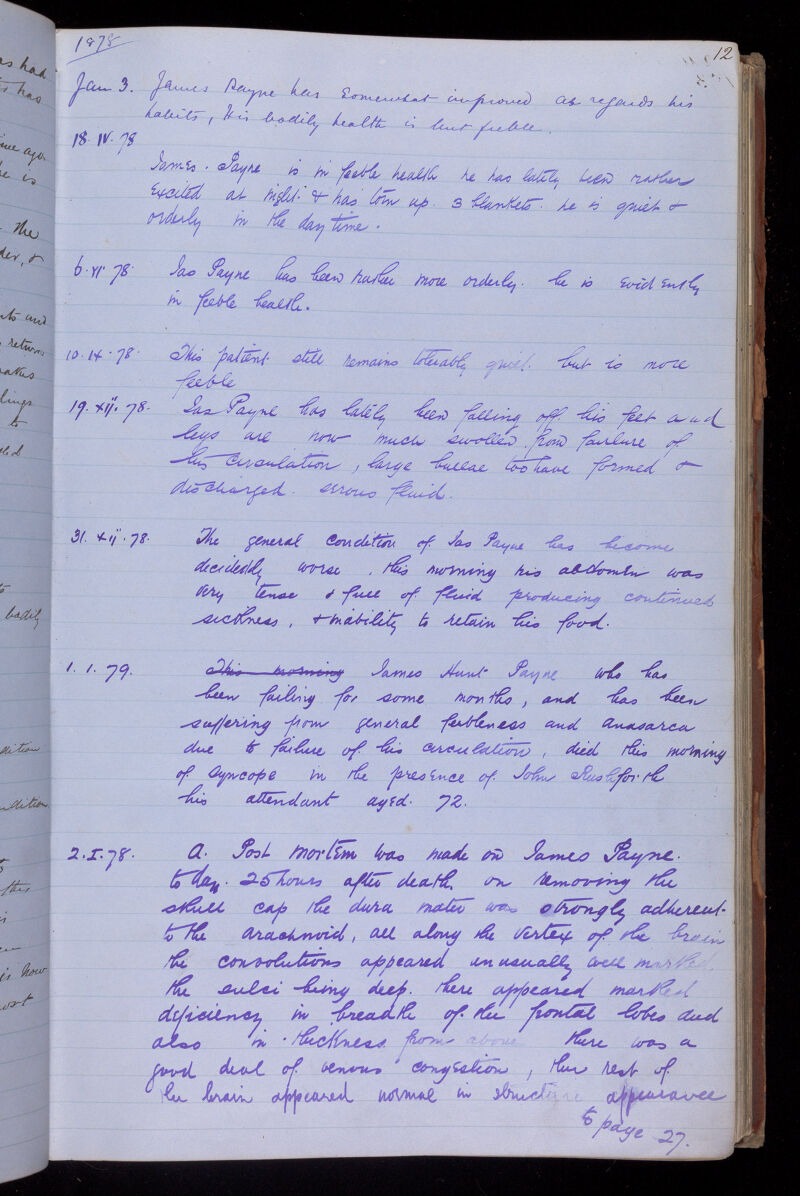 1878
12
Jan 3. James Payne has somewhat improved as regards his
habits, His bodily health is but feeble.
18.IV.78
James. Payne is in feeble health he has lately been rather
excited at night. & has torn up 3 blankets. he is quiet &
orderly in the day time.
6.VI.78 Jas Payne has been rather more orderly. he is evidently
in feeble health.
10.IX.78. This patient still remains tolerably quiet. but is more
feeble
19.XII.78. Jas Payne has lately been falling off his feet and
legs are now much swollen from failure of
his circulation, large bullae too have formed &
discharged. serous fluid.
31.XII.78. The general condition of Jas Payne has become
decidedly worse. this morning his abdomen was
very tense & full of fluid producing continued
sickness, & inability to retain his food.
1.1.79. This morning James Hunt Payne who has
been failing for some months, and has been
suffering from general feebleness and anasarca
due to failure of his circulation, died this morning
of syncope in the presence of John Rushforth
his attendant aged. 72.
2.I.78. A. Post mortem was made on James Payne.
to day. 25 hours after death. on removing the
skull cap the dura mater was strongly adherent
to the arachnoid, all along the vertex of the brain
the convolutions appeared unusually well marked.
the sulci being deep. there appeared marked
deficiency in breadth of the frontal lobes and
also in thickness from above there was a
good deal of venous congestion, the rest of
the brain appeared normal in structure appearance
to page 27.